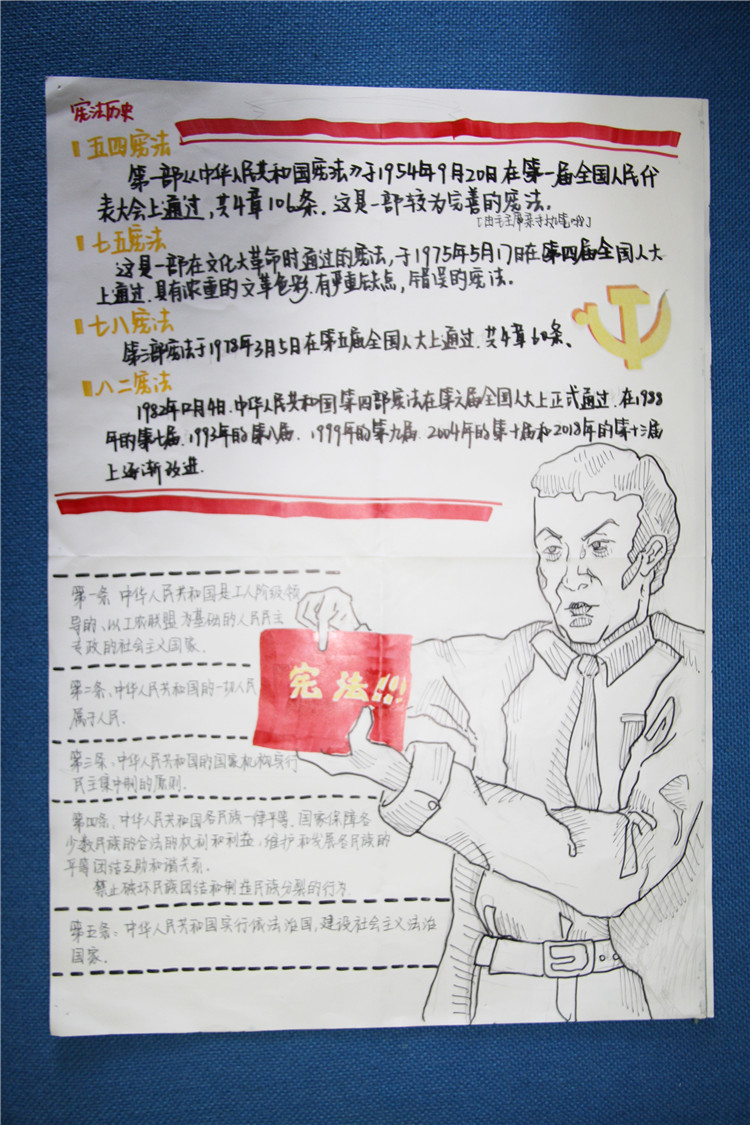 宪法历史
五四宪法
第一部《中华人民共和国宪法》于1954年9月20日在第一届全国人民代
表大会上通过,共4章106条。这是一部较为完善的宪法。
[由毛主席亲手执笔哦]
七五宪法
这是一部在文化大革命时通过的宪法,于1975年5月17日在第四届全国人大
上通过.具有浓重的文革色彩.有严重缺点,错误的宪法。
七八宪法
第三部宪法于1978年3月5日在第五届全国人大上通过.共4章60条、
八二宪法
1982年12月4日.中华人民共和国第四部宪法在第六届全国人大上正式通过.在1988
年的第七届.1993年的第八届.1999年的第九届.2004年的第十届和2018年的第十三届
上逐渐改进.
第一条.中华人民共和国是工人阶级领
导的、以工农联盟为基础的人民民主
专政的社会主义国家.
第二条、中华人民共和国的一切人民
属于人民.
第三条、中华人民共和国的国家机构实行
民主集中制的原则.
第四条,中华人民共和国各民族一律平等.国家保障各
少数民族的合法的权利和利益、维护和发展各民族的
平等团结互助和谐关系.
禁止破坏民族团结和制造民族分裂的行为
第五条:中华人民共和国实行依法治国,建设社会主义法治
国家.
宪法!!!